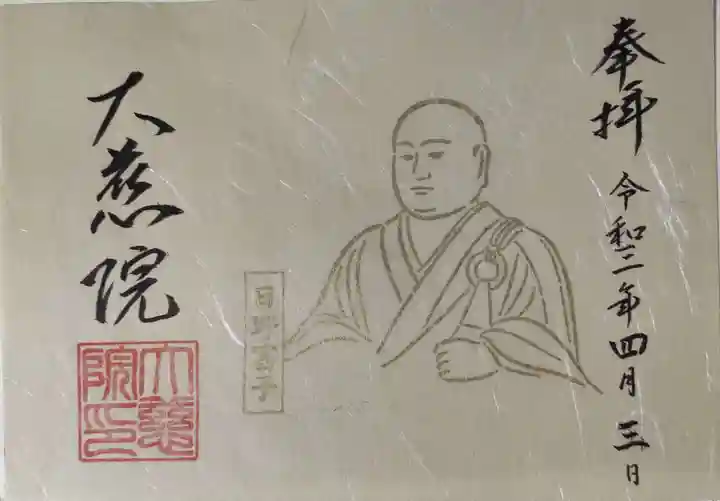 奉拝
令和二年四月三日
日野富子
大慈院
大慈院印